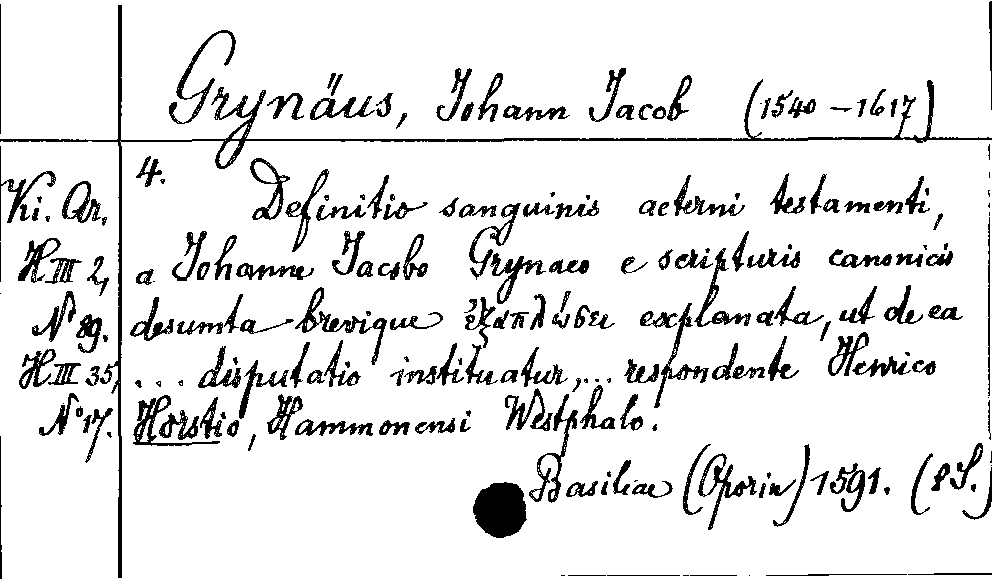 Grynäus, Johann Jacob (1540-1617)
4.
Ki. Ar. Definitio sanguinis aeterni testamenti,
H. III 2, a Johanne Jacobo Grynaeo e scripturis canonicis
No 89. desumta brevique ἐξαπλώσει explanata, ut de ea
H. III 35, ... disputatio instituatur, ... respondente Henrico
No 17. Horstio, Hammonensi Westphalo.
Basileae (Oporin) 1591. (8 S.)